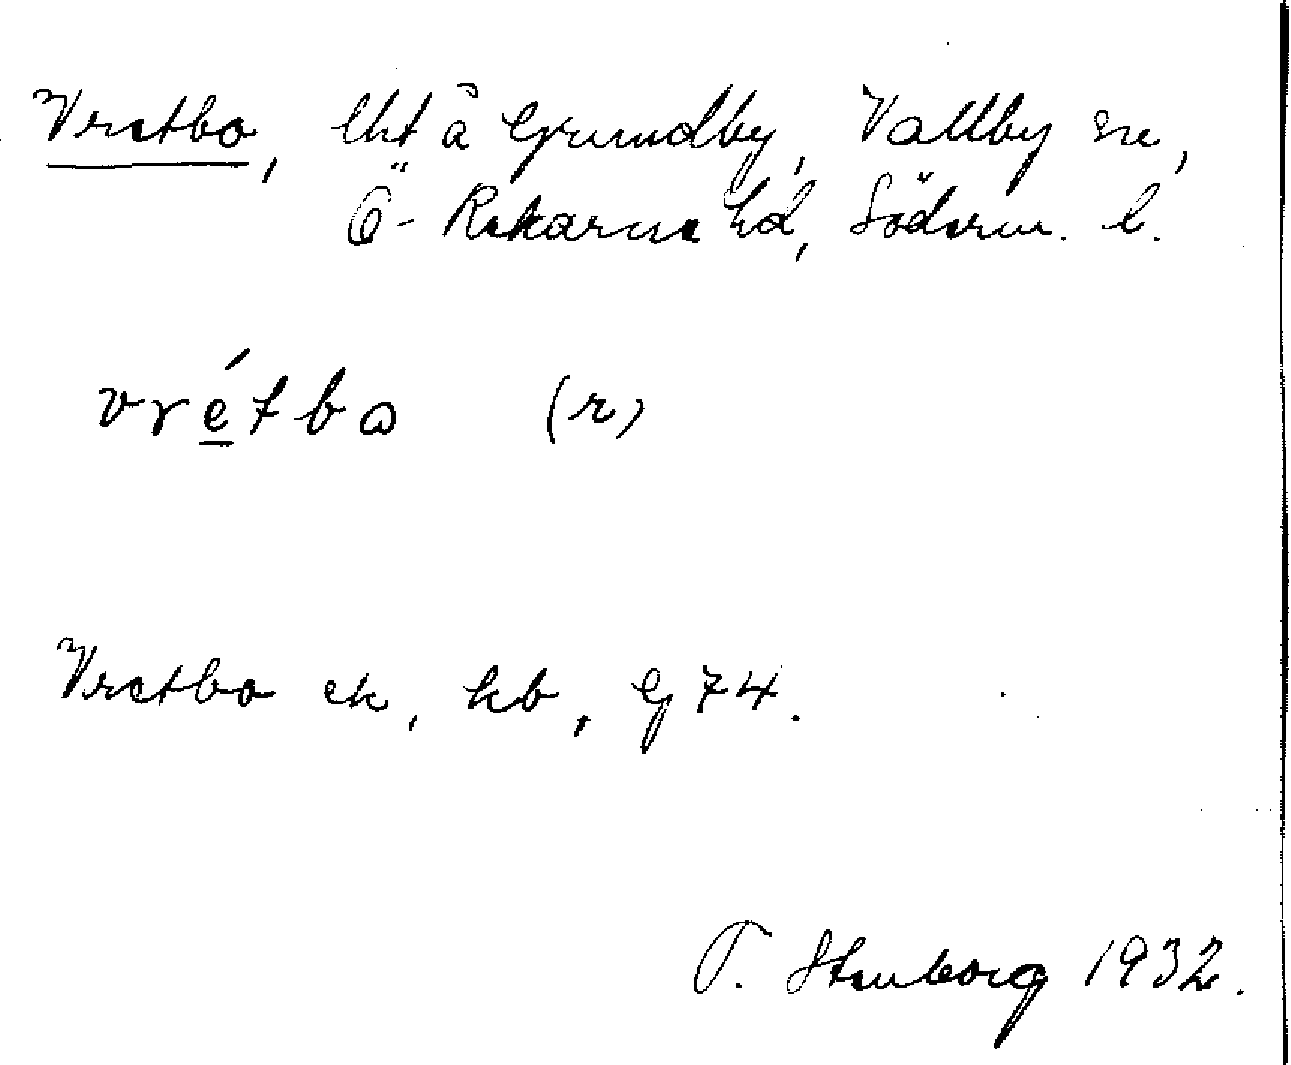 Vretbo, lht å Grundby, Vallby sn,
Ö- Rekarne hd, Söderm. l.
vrétbo (r)
Vretbo ek, kb, G 74.
T. Stenborg 1932.